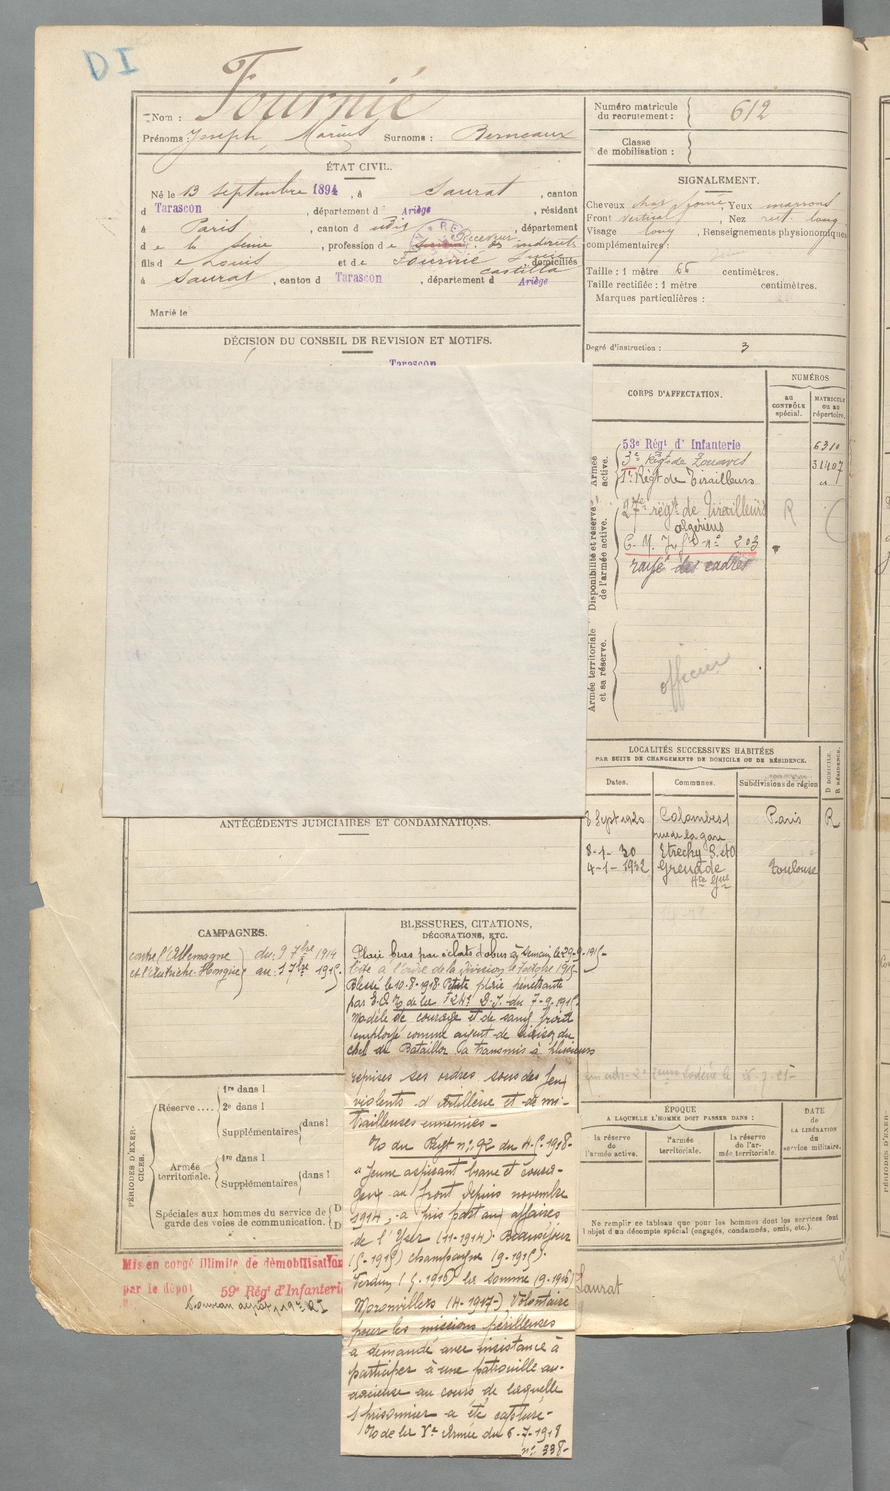 DI
Nom : Fournié
Prénoms : Joseph, Marius Surnoms : Berneaux
ÉTAT CIVIL.
Né le 13 septembre 1894, à Saurat, canton
d Tarascon, département d Ariège, résidant
à Paris, canton d udis, département
d e la Seine, profession d e Receveur des indirects
fils d e Louis et d e Fournié domiciliés
à Saurat, canton d Tarascon, département d Ariège
Marié le
DÉCISION DU CONSEIL DE REVISION ET MOTIFS.
Tarascon
Numéro matricule du recrutement : 612
Classe de mobilisation :
SIGNALEMENT.
Cheveux Yeux marrons
Front vertical, Nez rect. long
Visage long, Renseignements physionomiques
complémentaires :
Taille : 1 mètre 66 centimètres.
Taille rectifiée : 1 mètre centimètres.
Marques particulières :
Degré d'instruction : 3
CORPS D'AFFECTATION.
NUMÉROS
au CONTRÔLE spécial.
MATRICULE OU AU répertoire.
Armée active.
53e Régt d' Infanterie 6310
3e Régt de Zouaves 31407
1r Régt de Tirailleurs
Disponibilité et réserve de l'armée active.
27e régt de Tirailleurs R
algériens
rayé des cadres
Armée territoriale et sa réserve.
officier
LOCALITÉS SUCCESSIVES HABITÉES
PAR SUITE DE CHANGEMENTS DE DOMICILE OU DE RÉSIDENCE.
Dates. Communes. Subdivisions de région
D DOMICILE. R RÉSIDENCE.
8 Sept 1920 Colombes Paris R
rue de la gare
8-1-30 Etrechy S. et O
4-1-1932 Grenade Toulouse
Hte Gne
ANTÉCÉDENTS JUDICIAIRES ET CONDAMNATIONS.
CAMPAGNES.
contre l'Allemagne du : 9 7bre 1914
et l'Autriche-Hongrie au : 1 7bre 1919
BLESSURES, CITATIONS,
DÉCORATIONS, ETC.
Plaie bras par éclats d'obus à Semain le 29-9-1915-
Cité à l'ordre de la division le 1915
Blessé le 10-8-1918 Petite plaie pénétrante
par E.O. de la D.I. du 7-9-1915
Modèle de courage et de sang froid
employé comme agent de liaison du
chef de Bataillon a transmis à plusieurs
reprises ses ordres sous des feux
violents d'Artillerie et de mi-
trailleuses ennemies -
No du Régt n° 92 du 4-5-1918-
« Jeune aspirant brave et coura-
geux au front depuis novembre
1914, a pris part aux affaires
de l'Yser (11-1914) Beauséjour
(5-1915) Champagne (9-1915)
Verdun (5-1916) la somme (9-1916)
Moronvillers (4-1917-) Volontaire
pour les missions périlleuses
a demandé avec insistance à
participer à une patrouille au-
dacieuse au cours de laquelle
1 prisonnier a été capturé -
No de la Vе Armée du 6-7-1918
n° 338-
PÉRIODES D'EXERCICES.
Réserve....
1re dans l
2e dans l
Supplémentaires dans l
Armée territoriale.
1re dans l
Supplémentaires dans l
Spéciales aux hommes du service de
garde des voies de communication.
ÉPOQUE
A LAQUELLE L'HOMME DOIT PASSER DANS :
la réserve de l'armée active.
l'armée territoriale.
la réserve de l'armée territoriale.
DATE de LA LIBÉRATION du service militaire.
Ne remplir ce tableau que pour les hommes dont les services font
l'objet d'un décompte spécial (engagés, condamnés, omis, etc.).
Mis en congé illimité de démobilisation
par le dépôt 59e Régt d'Infanterie
Saurat